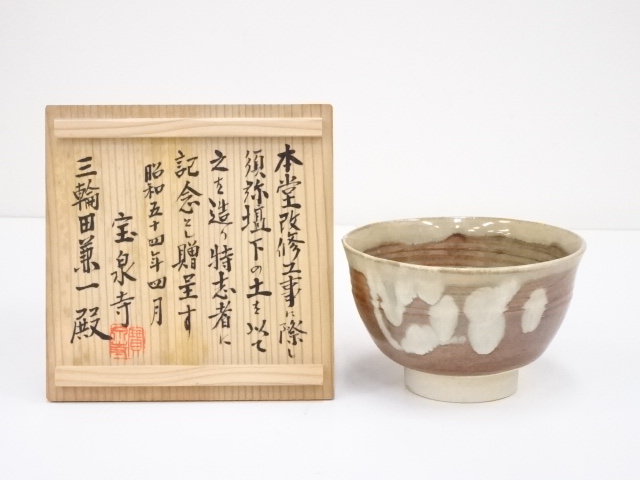 本堂改修工事に際し
須弥壇下の土を以て
之を造り特志者に
記念とし贈呈す
昭和五十四年四月
宝泉寺
三輪田兼一殿